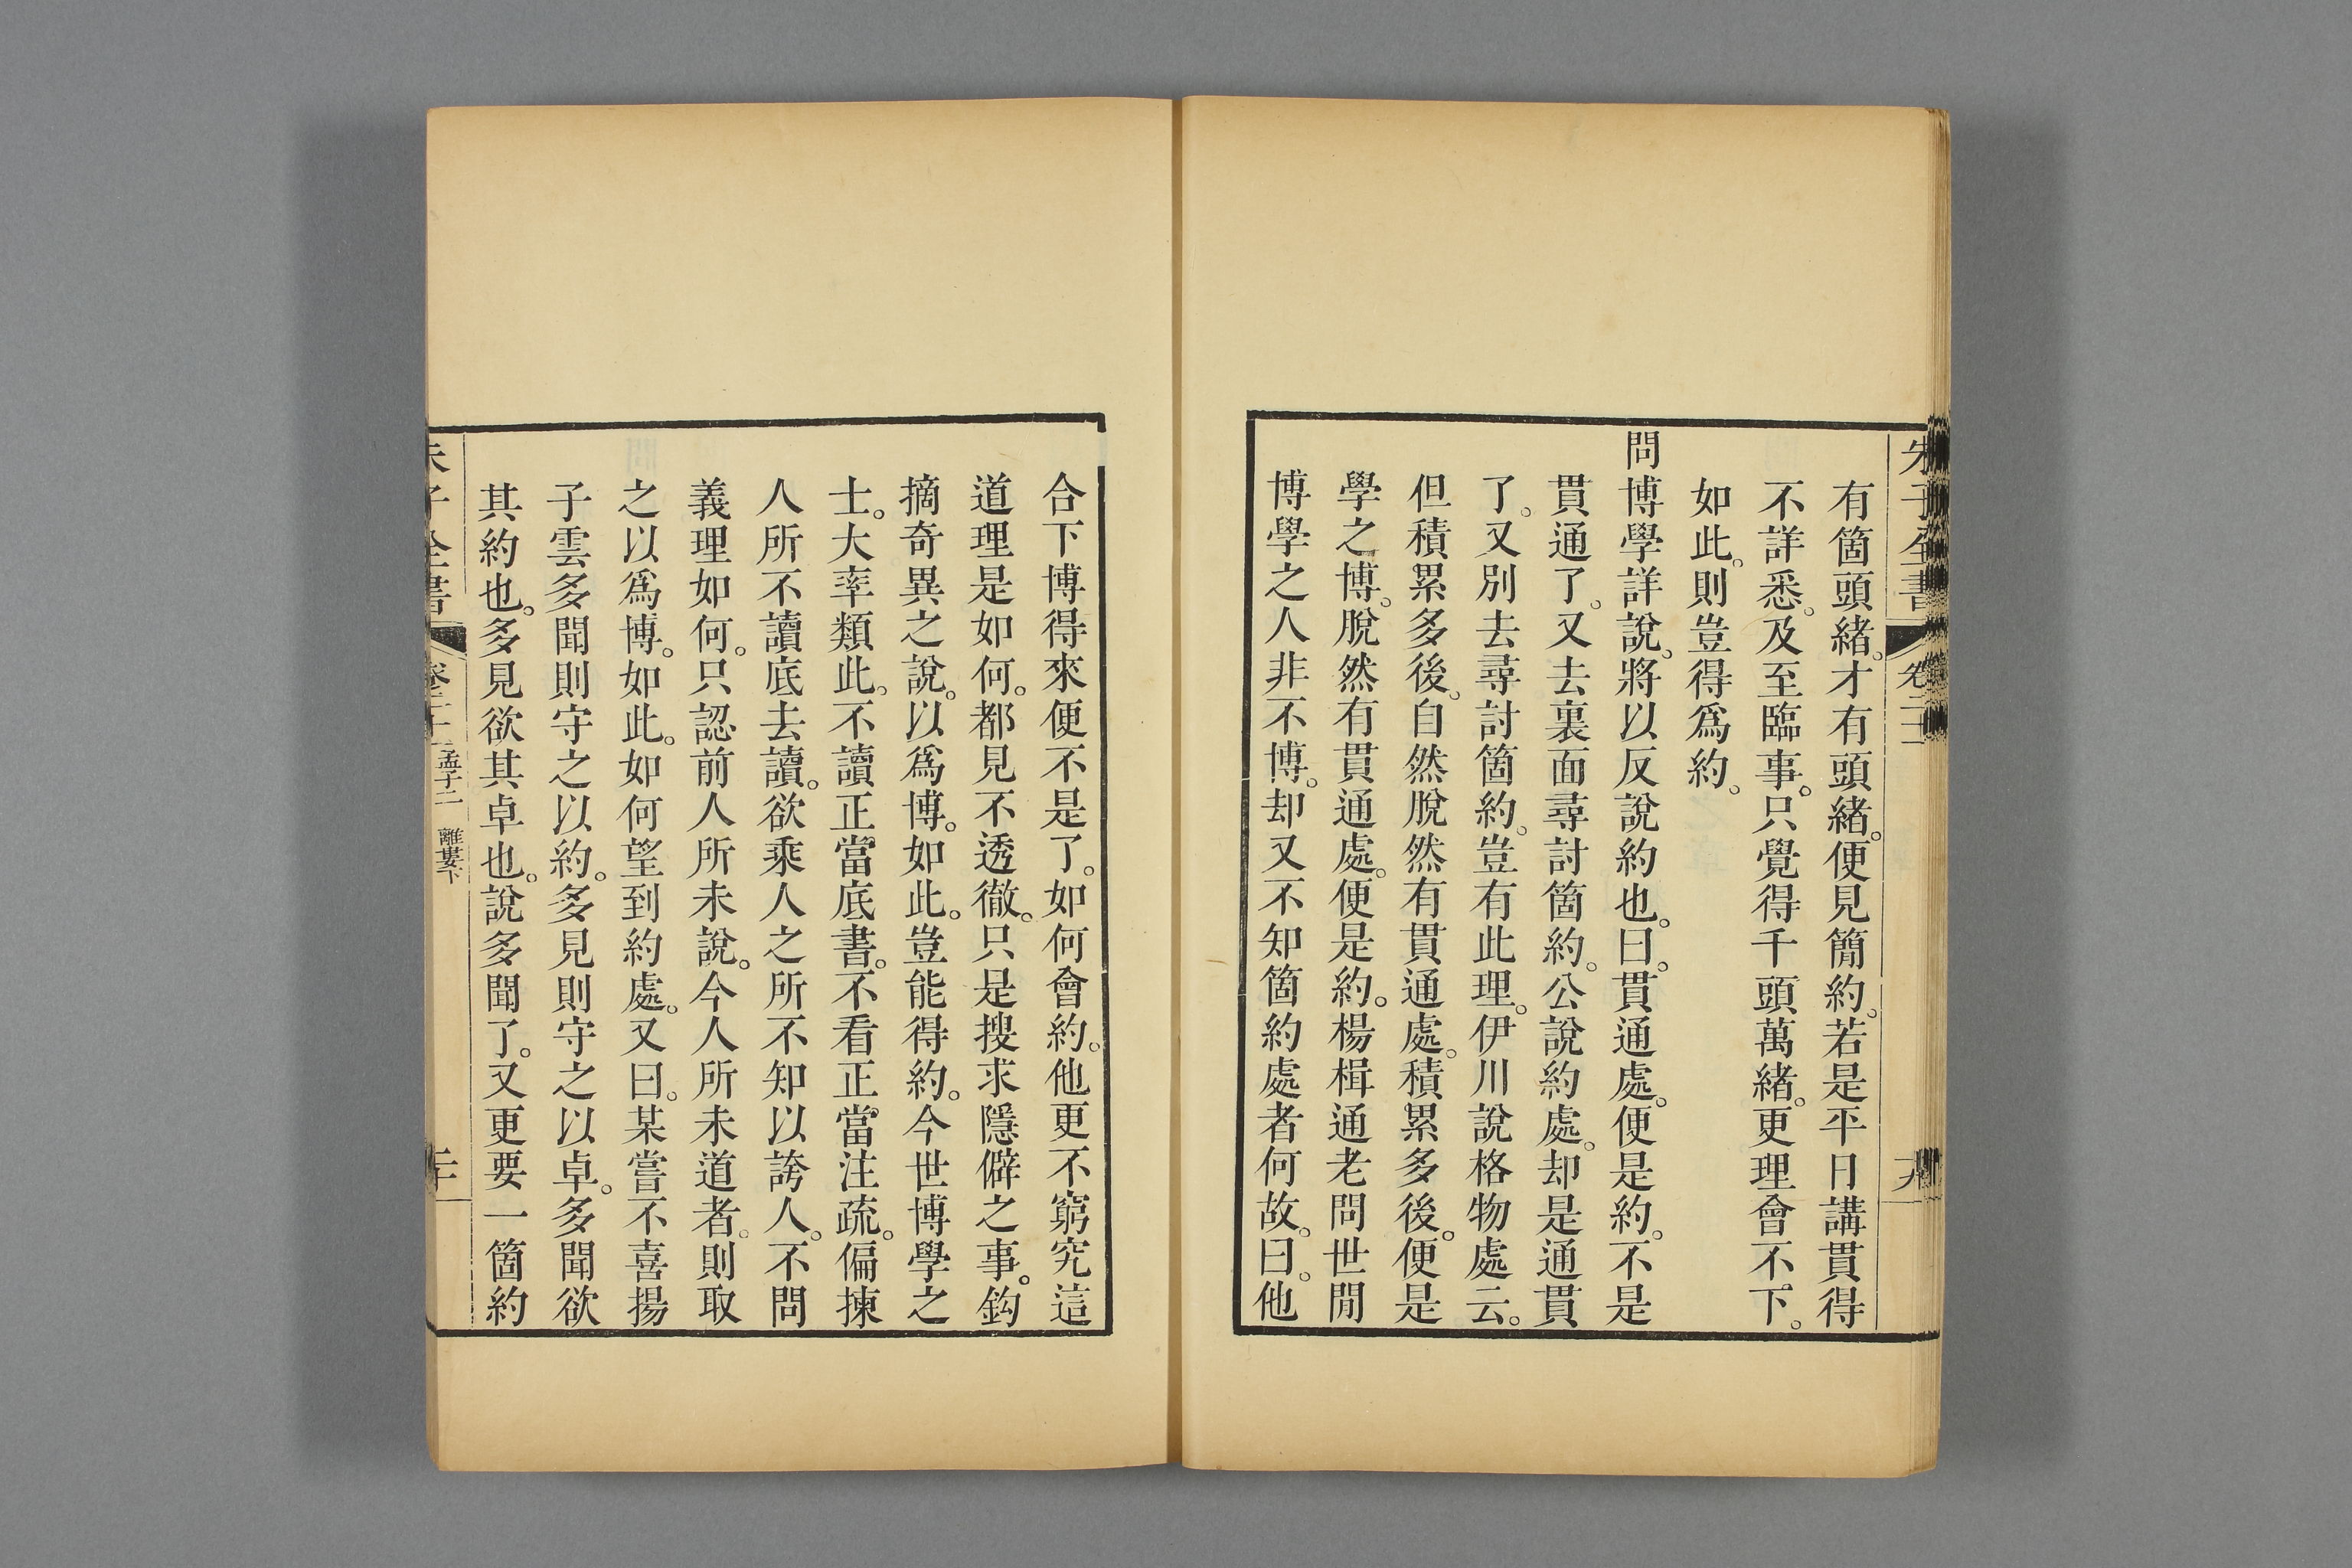 朱子全書 卷二十一 十九
有箇頭緒。才有頭緒。便見簡約。若是平日講貫得
不詳悉。及至臨事。只覺得千頭萬緒。更理會不下。
如此。則豈得爲約。
問博學詳說。將以反說約也。曰。貫通處。便是約。不是
貫通了。又去裏面尋討箇約。公說約處。却是通貫
了。又別去尋討箇約。豈有此理。伊川說格物處云。
但積累多後。自然脫然有貫通處。積累多後。便是
學之博。脫然有貫通處。便是約。楊楫通老問世閒
博學之人非不博。却又不知箇約處者何故。曰。他
合下博得來便不是了。如何會約。他更不窮究這
道理是如何。都見不透徹。只是搜求隱僻之事。鈎
摘奇異之說。以爲博。如此。豈能得約。今世博學之
士。大率類此。不讀正當底書。不看正當注疏。偏揀
人所不讀底去讀。欲乘人之所不知以誇人。不問
義理如何。只認前人所未說。今人所未道者。則取
之以爲博。如此。如何望到約處。又曰。某嘗不喜揚
子雲多聞則守之以約。多見則守之以卓。多聞欲
其約也。多見欲其卓也。說多聞了。又更要一箇約
朱子全書 孟子二 離婁下 二十